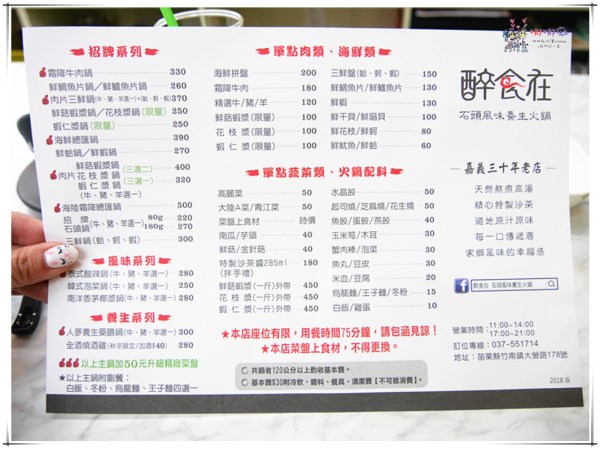 招牌系列
霜降牛肉鍋 330
鮮鯛魚片鍋/鮮鱸魚片鍋 260
肉片三鮮鍋(牛、豬、羊選一)+(蛤、蚵、蝦) 370
鮮菇蝦漿鍋/花枝漿鍋(限量) 250
蝦仁漿鍋(限量) 250
海鮮總匯鍋 390
鮮蛤鍋/鮮蝦鍋 270
鮮菇蝦漿鍋
肉片花枝漿鍋
蝦仁漿鍋
(三選二) 400
(三選一) 320
(牛、豬、羊選一)
海陸霜降總匯鍋 500
招牌石頭鍋(牛、豬、羊選一) 80g 220
160g 270
三鮮鍋(蛤、蚵、蝦) 300
風味系列
泰式酸辣鍋(牛、豬、羊選一) 280
韓式泡菜鍋(牛、豬、羊選一) 250
南洋香茅椰漿鍋(牛、豬、羊選一) 280
養生系列
人蔘養生藥膳鍋(牛、豬、羊選一) 300
全酒燒酒雞(秋冬限定/加酒$40) 280
以上主鍋加50元升級精緻菜盤
★以上主鍋附副餐：
白飯、冬粉、烏龍麵、王子麵四選一
單點肉類、海鮮類
海鮮拼盤 200
霜降牛肉 180
精選牛/豬/羊 120
鮮菇蝦漿(限量) 100
花枝漿(限量) 100
蝦仁漿(限量) 100
三鮮盤(蛤、蚵、蝦) 150
鮮鯛魚片/鮮鱸魚片 130
鮮蝦 130
鮮干貝/鮮扇貝 100
鮮花枝/鮮蚵 80
鮮魷魚/鮮蛤 60
單點蔬菜類、火鍋配料
高麗菜 50
大陸A菜/青江菜 50
菜盤上食材 時價
南瓜/芋頭 40
鮮菇/金針菇 40
特製沙茶醬285ml 180
(拌手禮)
鮮菇蝦漿(一斤)外帶 450
花枝漿(一斤)外帶 450
蝦仁漿(一斤)外帶 450
水晶餃 50
起司燒/芝麻燒/花生燒 50
魚餃/蛋餃/燕餃 40
玉米筍/木耳 30
蟹肉棒/泡菜 30
魚丸/豆皮 30
米血/豆腐 20
烏龍麵/王子麵/冬粉 15
白飯/雞蛋 10
★本店座位有限，用餐時間75分鐘，請包涵見諒！
★本店菜盤上食材，不得更換。
共鍋者120公分以上酌收基本費。
基本費$30附冷飲、醬料、餐具、清潔費【不可抵消費】。
醉食在
石頭風味養生火鍋
嘉義三十年老店
天然熬煮高湯
精心特製沙茶
道地原汁原味
每一口傳遞著
家鄉風味的幸福感
醉食在 石頭風味養生火鍋
營業時間：11:00-14:00
17:00-21:00
訂位專線：037-551714
地址：苗栗縣竹南鎮大營路178號
2018 版